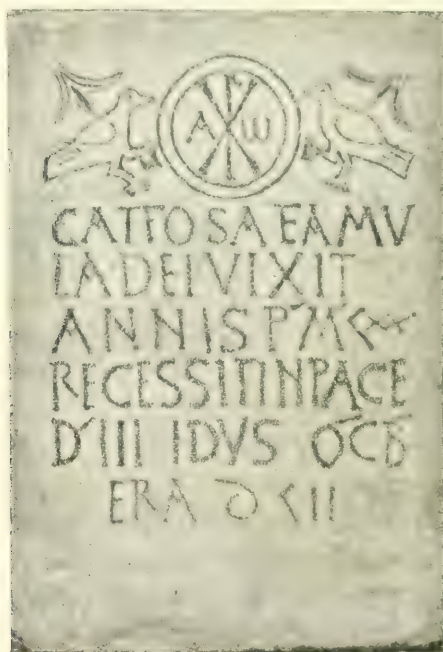 A ω
CATTOSA FAMV
LA DEI VIXIT
ANNIS PM
RECESSIT IN PACE
D III IDVS OCTB
ERA DCII